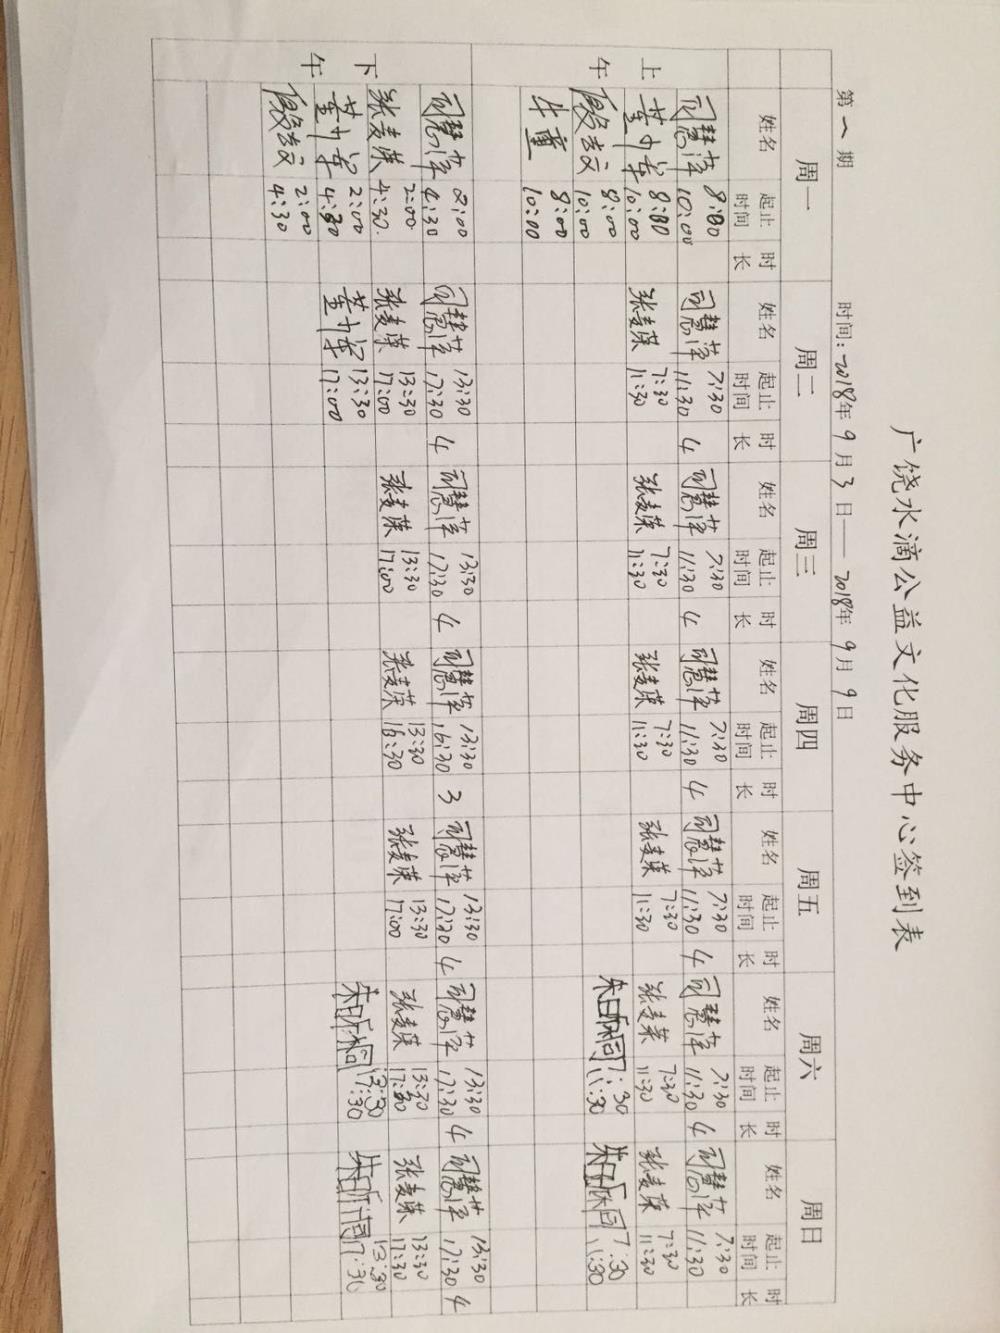 广饶水滴公益文化服务中心签到表
第一期 时间:2018年9月3日——2018年9月9日
周一 周二 周三 周四 周五 周六 周日
姓名 起止时间 时长 姓名 起止时间 时长 姓名 起止时间 时长 姓名 起止时间 时长 姓名 起止时间 时长 姓名 起止时间 时长 姓名 起止时间 时长
上午
司慧萍 8:00 10:00 司慧萍 7:30 11:30 4 司慧萍 7:30 11:30 4 司慧萍 7:30 11:30 4 司慧萍 7:30 11:30 4 司慧萍 7:30 11:30 4 司慧萍 7:30 11:30
8:00 10:00 张麦荣 7:30 11:30 张麦荣 7:30 11:30 张麦荣 7:30 11:30 张麦荣 7:30 11:30 张麦荣 7:30 11:30 张麦荣 7:30 11:30
8:00 10:00 7:30 11:30 7:30 11:30
8:00 10:00
下午
司慧萍 2:00 4:30 司慧萍 13:30 17:30 4 司慧萍 13:30 17:30 4 司慧萍 13:30 16:30 3 司慧萍 13:30 17:30 4 司慧萍 13:30 17:30 4 司慧萍 13:30 17:30 4
张麦荣 2:00 4:30 张麦荣 13:30 17:00 张麦荣 13:30 17:00 张麦荣 13:30 16:30 张麦荣 13:30 17:00 张麦荣 13:30 17:30 张麦荣 13:30 17:30
2:00 4:30 13:30 17:00 13:30 17:30 13:30 17:30
2:00 4:30